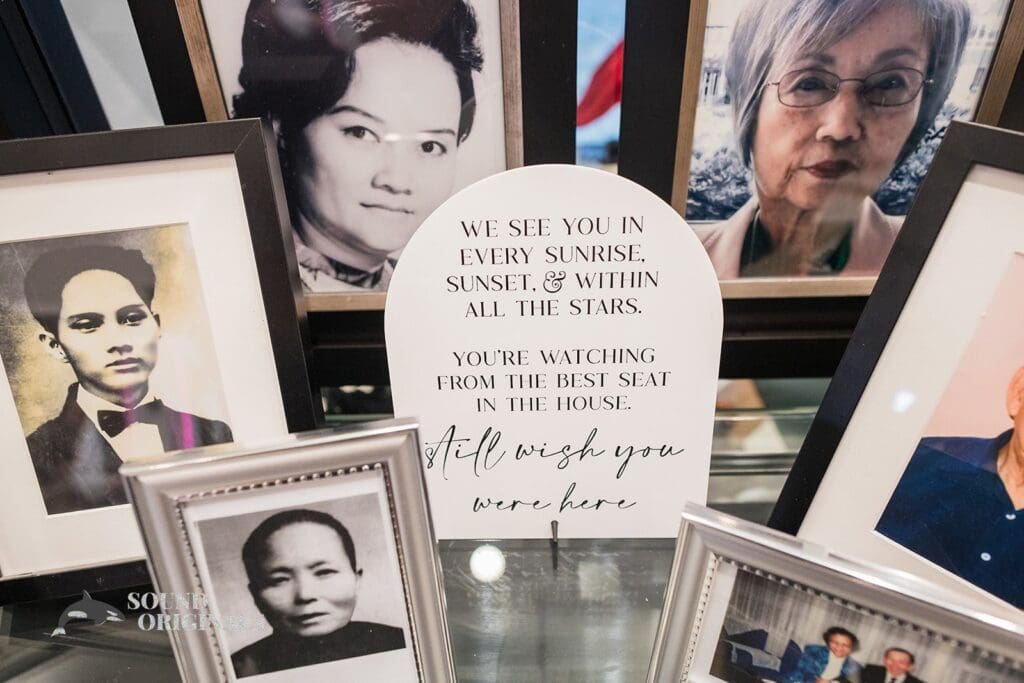 WE SEE YOU IN
EVERY SUNRISE,
SUNSET, & WITHIN
ALL THE STARS.
YOU'RE WATCHING
FROM THE BEST SEAT
IN THE HOUSE.
still wish you
were here
SOUND
ORIGINALS